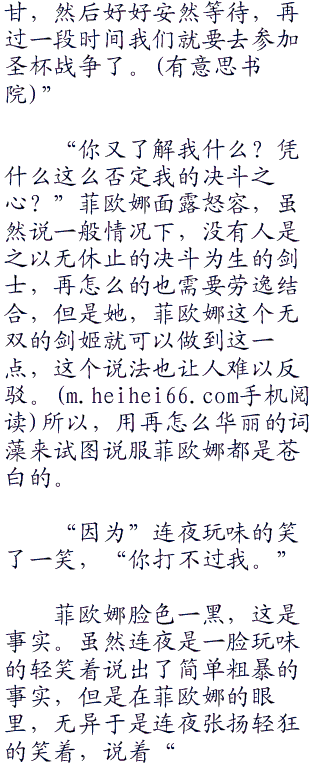 甘，然后好好安然等待，再
过一段时间我们就要去参加
圣杯战争了。(有意思书
院)”
“你又了解我什么？凭
什么这么否定我的决斗之
心？”菲欧娜面露怒容，虽
然说一般情况下，没有人是
之以无休止的决斗为生的剑
士，再怎么的也需要劳逸结
合，但是她，菲欧娜这个无
双的剑姬就可以做到这一
点，这个说法也让人难以反
驳。(m.heihei66.com手机阅
读)所以，用再怎么华丽的词
藻来试图说服菲欧娜都是苍
白的。
“因为”连夜玩味的笑
了一笑，“你打不过我。”
菲欧娜脸色一黑，这是
事实。虽然连夜是一脸玩味
的轻笑着说出了简单粗暴的
事实，但是在菲欧娜的眼
里，无异于是连夜张扬轻狂
的笑着，说着“